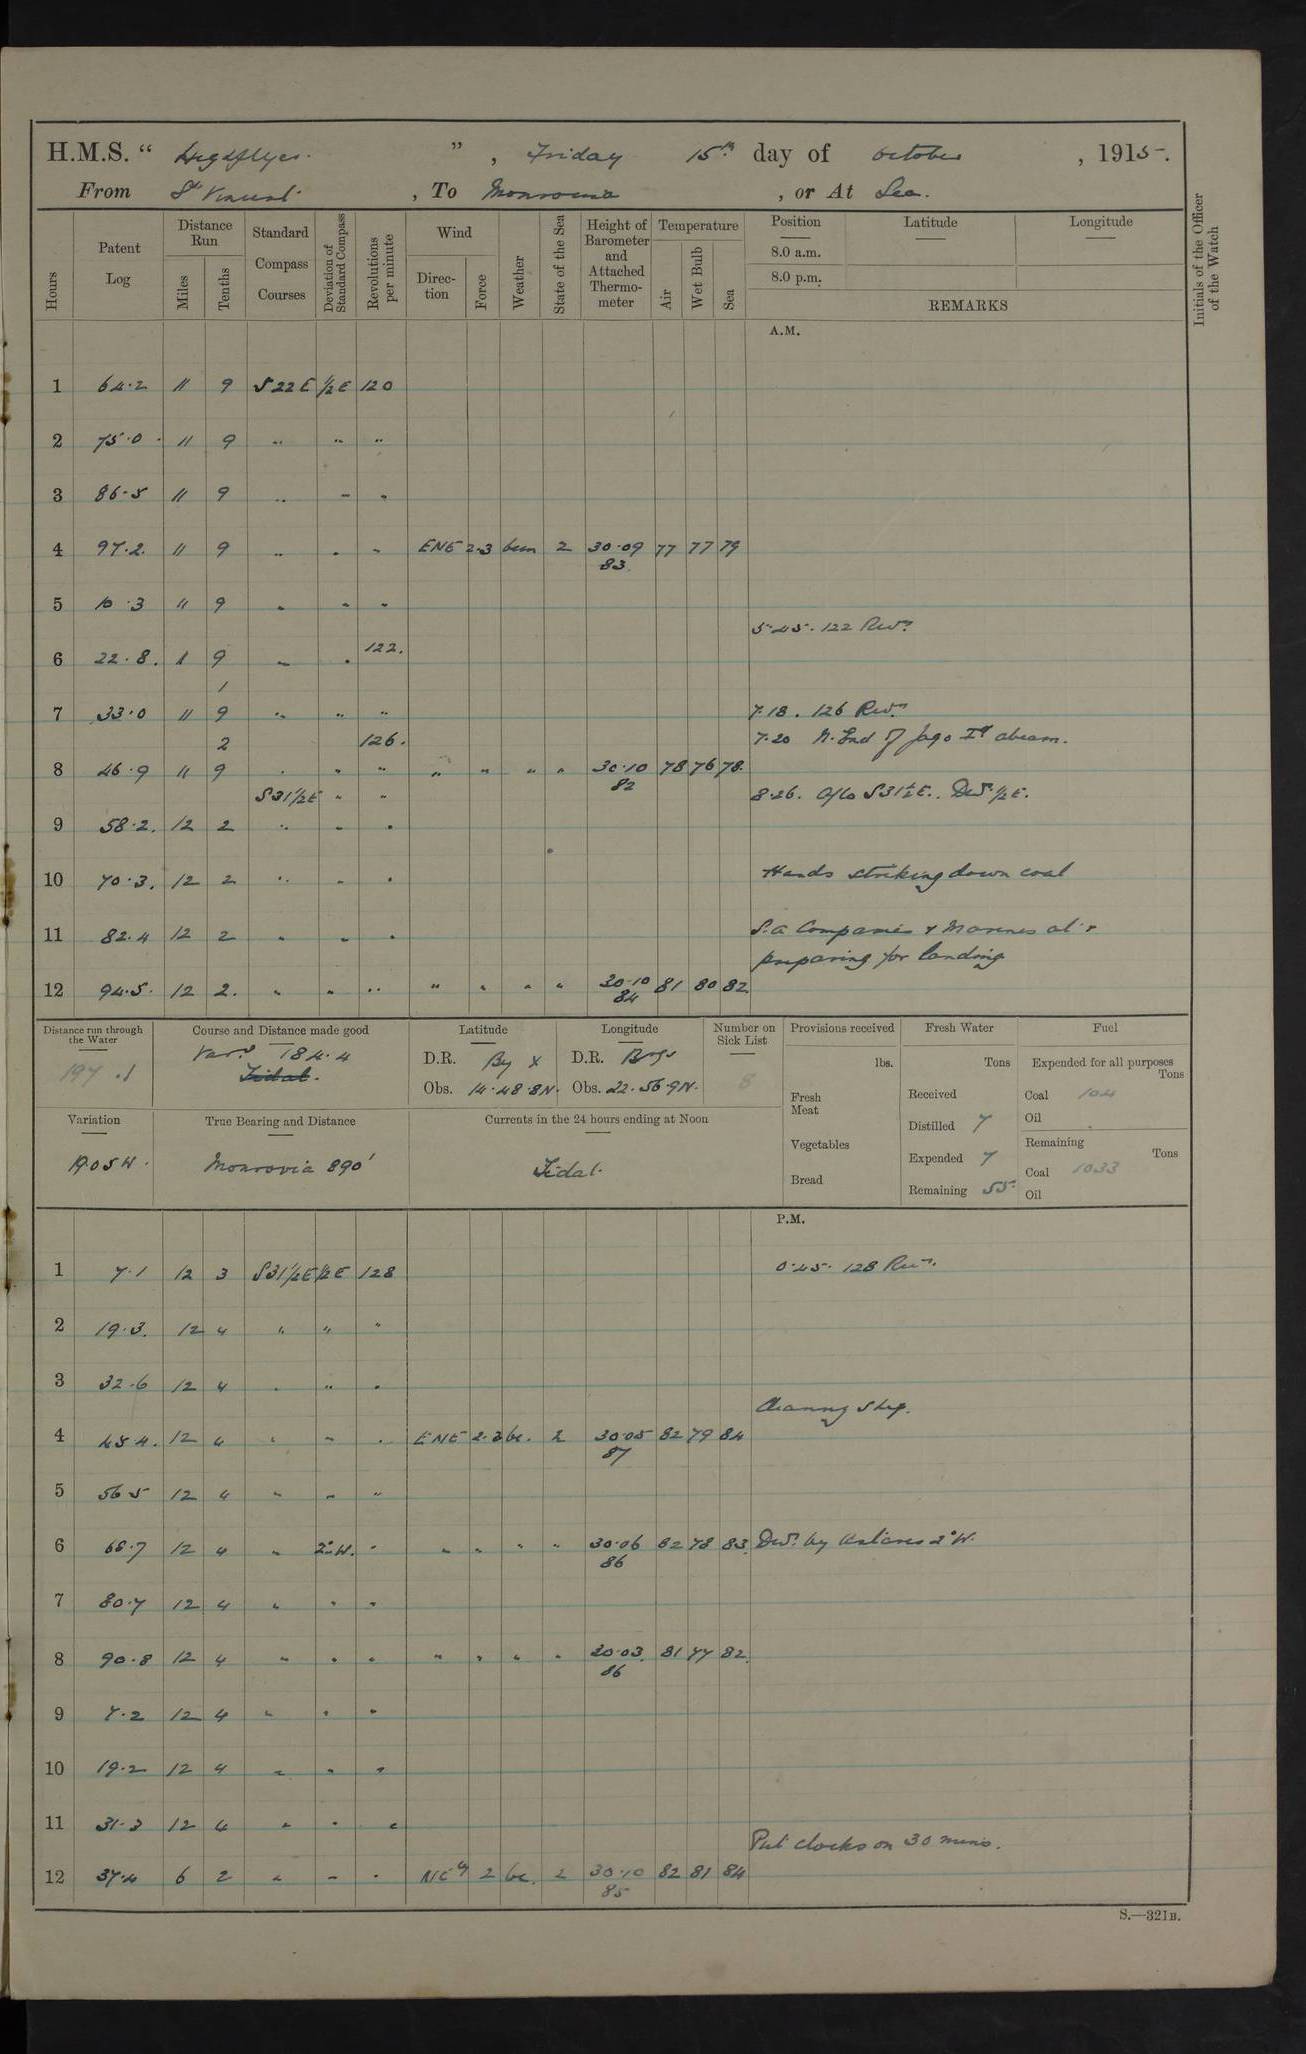 H.M.S. “ Highflyer. ”, Friday 15th day of October, 1915.
From St Vincent, To Monrovia, or At Sea.
Hours
Patent Log
Distance Run
Miles
Tenths
Standard Compass Courses
Deviation of Standard Compass
Revolutions per minute
Wind
Direction
Force
Weather
State of the Sea
Height of Barometer and Attached Thermometer
Temperature
Air
Wet Bulb
Sea
Position Latitude Longitude
8.0 a.m.
8.0 p.m.
REMARKS
Initials of the Officer of the Watch
A.M.
1 64.2 11 9 S 22 E ½E 120
2 75.0 11 9 " " "
3 86.5 11 9 " " "
4 97.2 11 9 " " " ENE 2.3 bcm 2 30.09 77 77 79
83
5 10.3 11 9 " " "
5.45. 122 Revs
6 22.8. 1 9 " " 122.
1
7 33.0 11 9 " " " 7.18. 126 Revs
2 126. 7.20 N. End of Jago Id abeam.
8 46.9 11 9 " " " " " " " 30.10 78 76 78.
82
S31½E " " 8.26. A/Co S31½E. Dev. ½E.
9 58.2. 12 2 " " "
10 70.3. 12 2 " " " Hands striking down coal
11 82.4 12 2 " " " S.a Companies & Marines at
preparing for landing
12 94.5. 12 2. " " " " " " " 30.10 81 80 82
84
Distance run through the Water
197.1
Course and Distance made good
184.4
Tidal.
Latitude
D.R. By X
Obs. 14.48.8N.
Longitude
D.R.
Obs. 22.56.9N.
Number on Sick List
8
Provisions received
lbs.
Fresh Meat
Vegetables
Bread
Fresh Water
Tons
Received
Distilled 7
Expended 7
Remaining 55
Fuel
Expended for all purposes
Tons
Coal 104
Oil
Remaining
Tons
Coal 1033
Oil
Variation
19.05W.
True Bearing and Distance
Monrovia 890'
Currents in the 24 hours ending at Noon
Tidal.
P.M.
1 7.1 12 3 S31½E ½E 128 0.45. 128 Revs.
2 19.3. 12 4 " " "
3 32.6 12 4 " " "
Cleaning Ship.
4 45 4. 12 4 " " " ENE 2.3 bc. 2 30.05 82 79 84
87
5 56 5 12 4 " " "
6 68.7 12 4 " 2°W. " " " " " 30.06 82 78 83 Dev. by 2°W.
86
7 80.7 12 4 " " "
8 90.8 12 4 " " " " " " " 30.03. 81 77 82.
86
9 7.2 12 4 " " "
10 19.2 12 4 " " "
11 31.3 12 4 " " "
Put clocks on 30 mins.
12 37.4 6 2 " " " NEly 2 bc. 2 30.10 82 81 84
85
S.—321B.